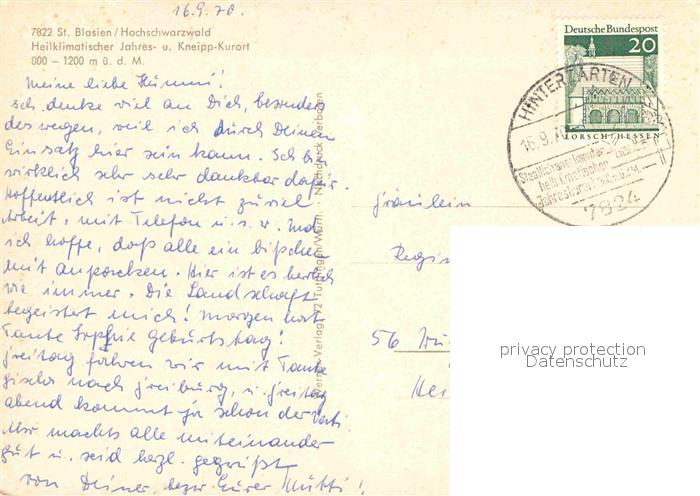 16.9.70.
7822 St. Blasien/Hochschwarzwald
Heilklimatischer Jahres- u. Kneipp-Kurort
800 – 1200 m ü. d. M.
Meine liebe Hümmi!
Ich denke viel an Dich, besonders
deswegen, weil ich durch Deinen
Einsatz hier sein kann. Ich bin
wirklich sehr sehr dankbar dafür.
Hoffentlich ist nicht zuviel
Arbeit, mit Telefon u.s.w. Und
ich hoffe, daß alle ein bißchen
mit anpacken. Hier ist es herrlich
wie immer. Die Landschaft
begeistert mich! Morgen hat
Tante Sophie Geburtstag!
Freitag fahren wir mit Tante
Gisela nach Freiburg, u. Freitag
abend kommt ja schon der Vati.
Nur machts alle miteinander
gut u. seid herzl. gegrüßt
von Deiner, bezw. Eurer Mutti!
Verlag 72 Tuttlingen/Württ. - Nachdruck verboten
Deutsche Bundespost
20
LORSCH/HESSEN
HINTERZARTEN
16.9.
heilklimatischer
7824
Fräulein
Regin
56
privacy protection
Datenschutz